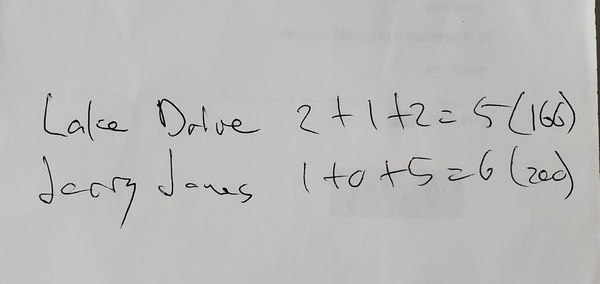 Lake Drive 2+1+2=5(166)
Jerry Jones 1+0+5=6(200)